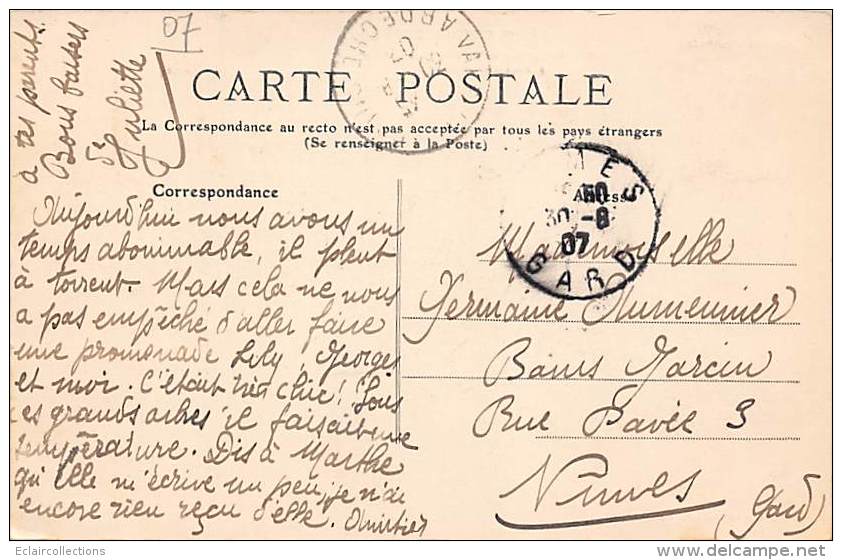 07
CARTE POSTALE
La Correspondance au recto n'est pas acceptée par tous les pays étrangers
(Se renseigner à la Poste)
Correspondance
Adresse
Aujourd'hui nous avons un
temps abominable, il pleut
à torrent. Mais cela ne nous
a pas empêché d'aller faire
une promenade Lily, Georges
et moi. C'était très chic! Sous
les grands arbres il faisait une
température. Dis à Marthe
qu'elle m'écrive un peu, je n'ai
encore rien reçu d'elle. Amitiés
à tes parents.
Bons baisers
de
Juliette
MES
30 -8
07
GARD
ARDECHE
07
Mademoiselle
Germaine
Bains
Rue Pavée 3
Nîmes
(Gard)
Eclaircollections
www.delcampe.net